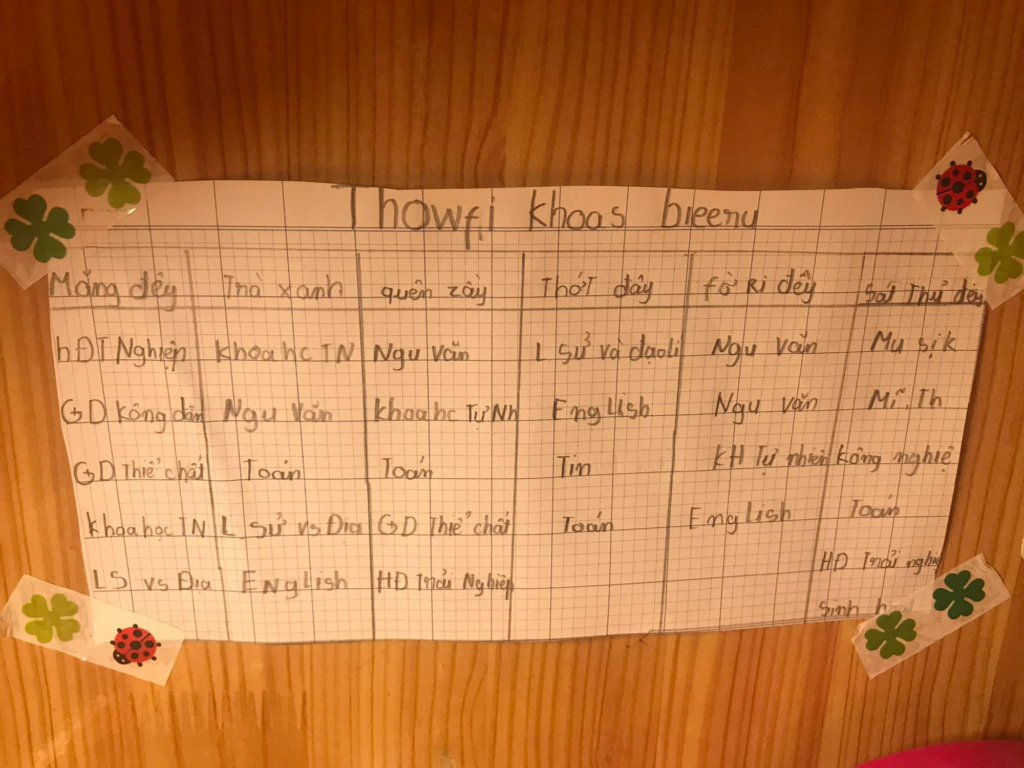 Thowfi khoas bieeru
Mắng đêy Trà xanh quên zảy Thớt đây fờ Ri đêy Sát Thủ đêy
hĐT Nghiệp khoa hc TN Ngu văn L sử và dạoli Ngu văn Mu sịk
GD kông dân Ngu Văn khoa hc Tự Nh English Ngu văn Mĩ.Th
GD Thiể chất Toán Toán Tin KH Tự nhiên kông nghiệ
khoa học TN L sử vs Dịa GD Thiể chất Toán English Toán
LS vs Địa English HĐ Trải Nghiệp HĐ Trải nghiệ
Sinh